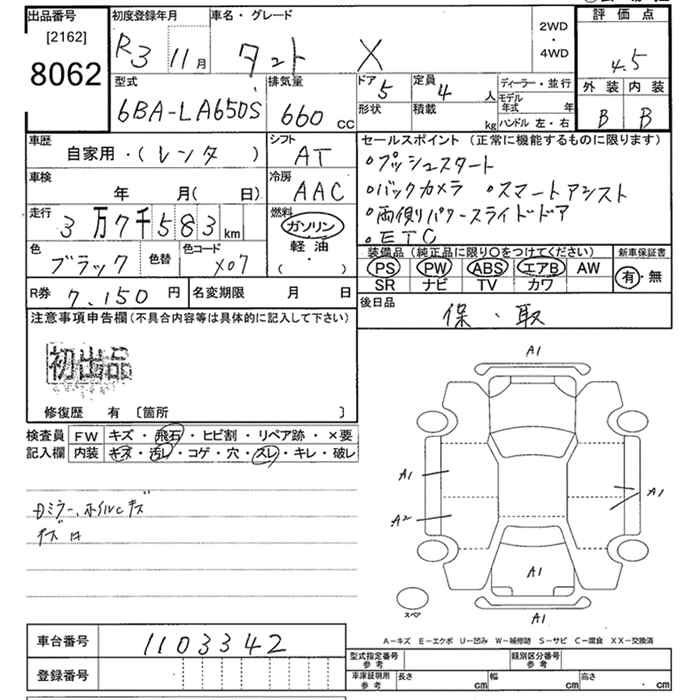 出品番号 初度登録年月 車名・グレード 2WD・4WD 評価点
[2162]
8062 R3 11月 タント X 4.5
外装 内装
B B
型式 6BA-LA650S 排気量 660 cc
ドア 5 定員 4 人 ディーラー・並行
形状 積載 kg モデル年式 年
ハンドル 左・右
車歴 自家用・(レンタ )
シフト AT
セールスポイント(正常に機能するものに限ります)
・プッシュスタート
・バックカメラ ・スマートアシスト
・両側リパワースライドドア
・ETC
車検 年 月( 日)
冷房 AAC
走行 3万7千583km
燃料 ガソリン
軽油
( ・ )
色 ブラック 色替 色コード X07
装備品(純正品に限り○をつけてください) 新車保証書
PS PW ABS エアB AW 有・無
SR ナビ TV カワ
R券 7,150円 名変期限 月 日
後日品 保・取
注意事項申告欄(不具合内容等は具体的に記入して下さい)
初出品
修復歴 有 〔箇所 〕
検査員 FW キズ・飛石・ヒビ割・リペア跡・×要
記入欄 内装 キズ・汚レ・コゲ・穴・スレ・キレ・破レ
A1
A1
A2
A1
A1
A1
スペア
A-キズ E-エクボ U-凹み W-補修跡 S-サビ C-腐食 XX-交換済
車台番号 1103342
登録番号
型式指定番号 参考 類別区分番号 参考
車庫証明用 参考 長さ cm 幅 cm 高さ cm